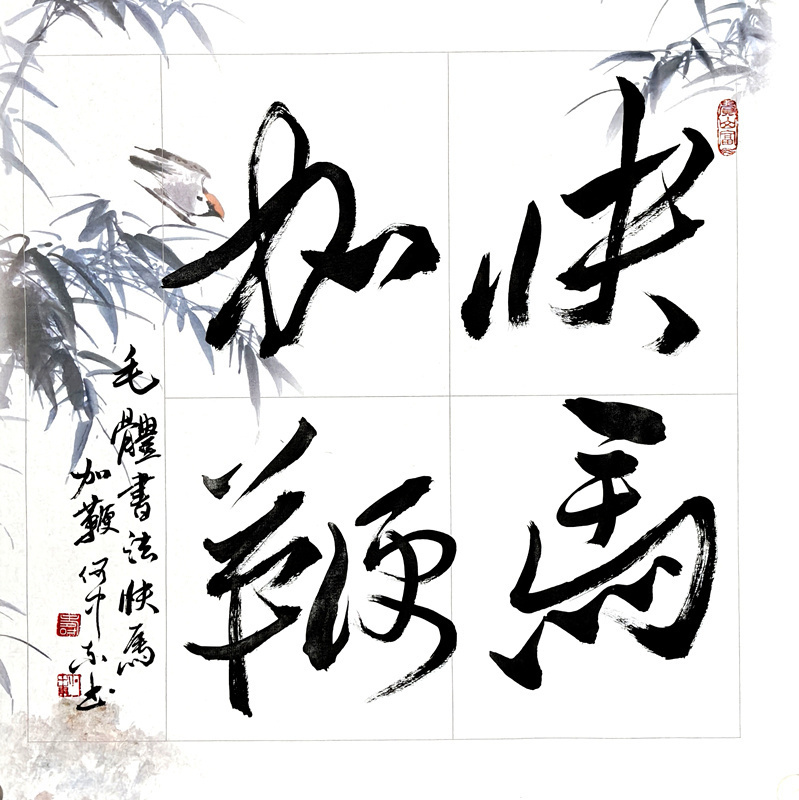 快馬
加鞭
毛體書法快馬
加鞭何中东书